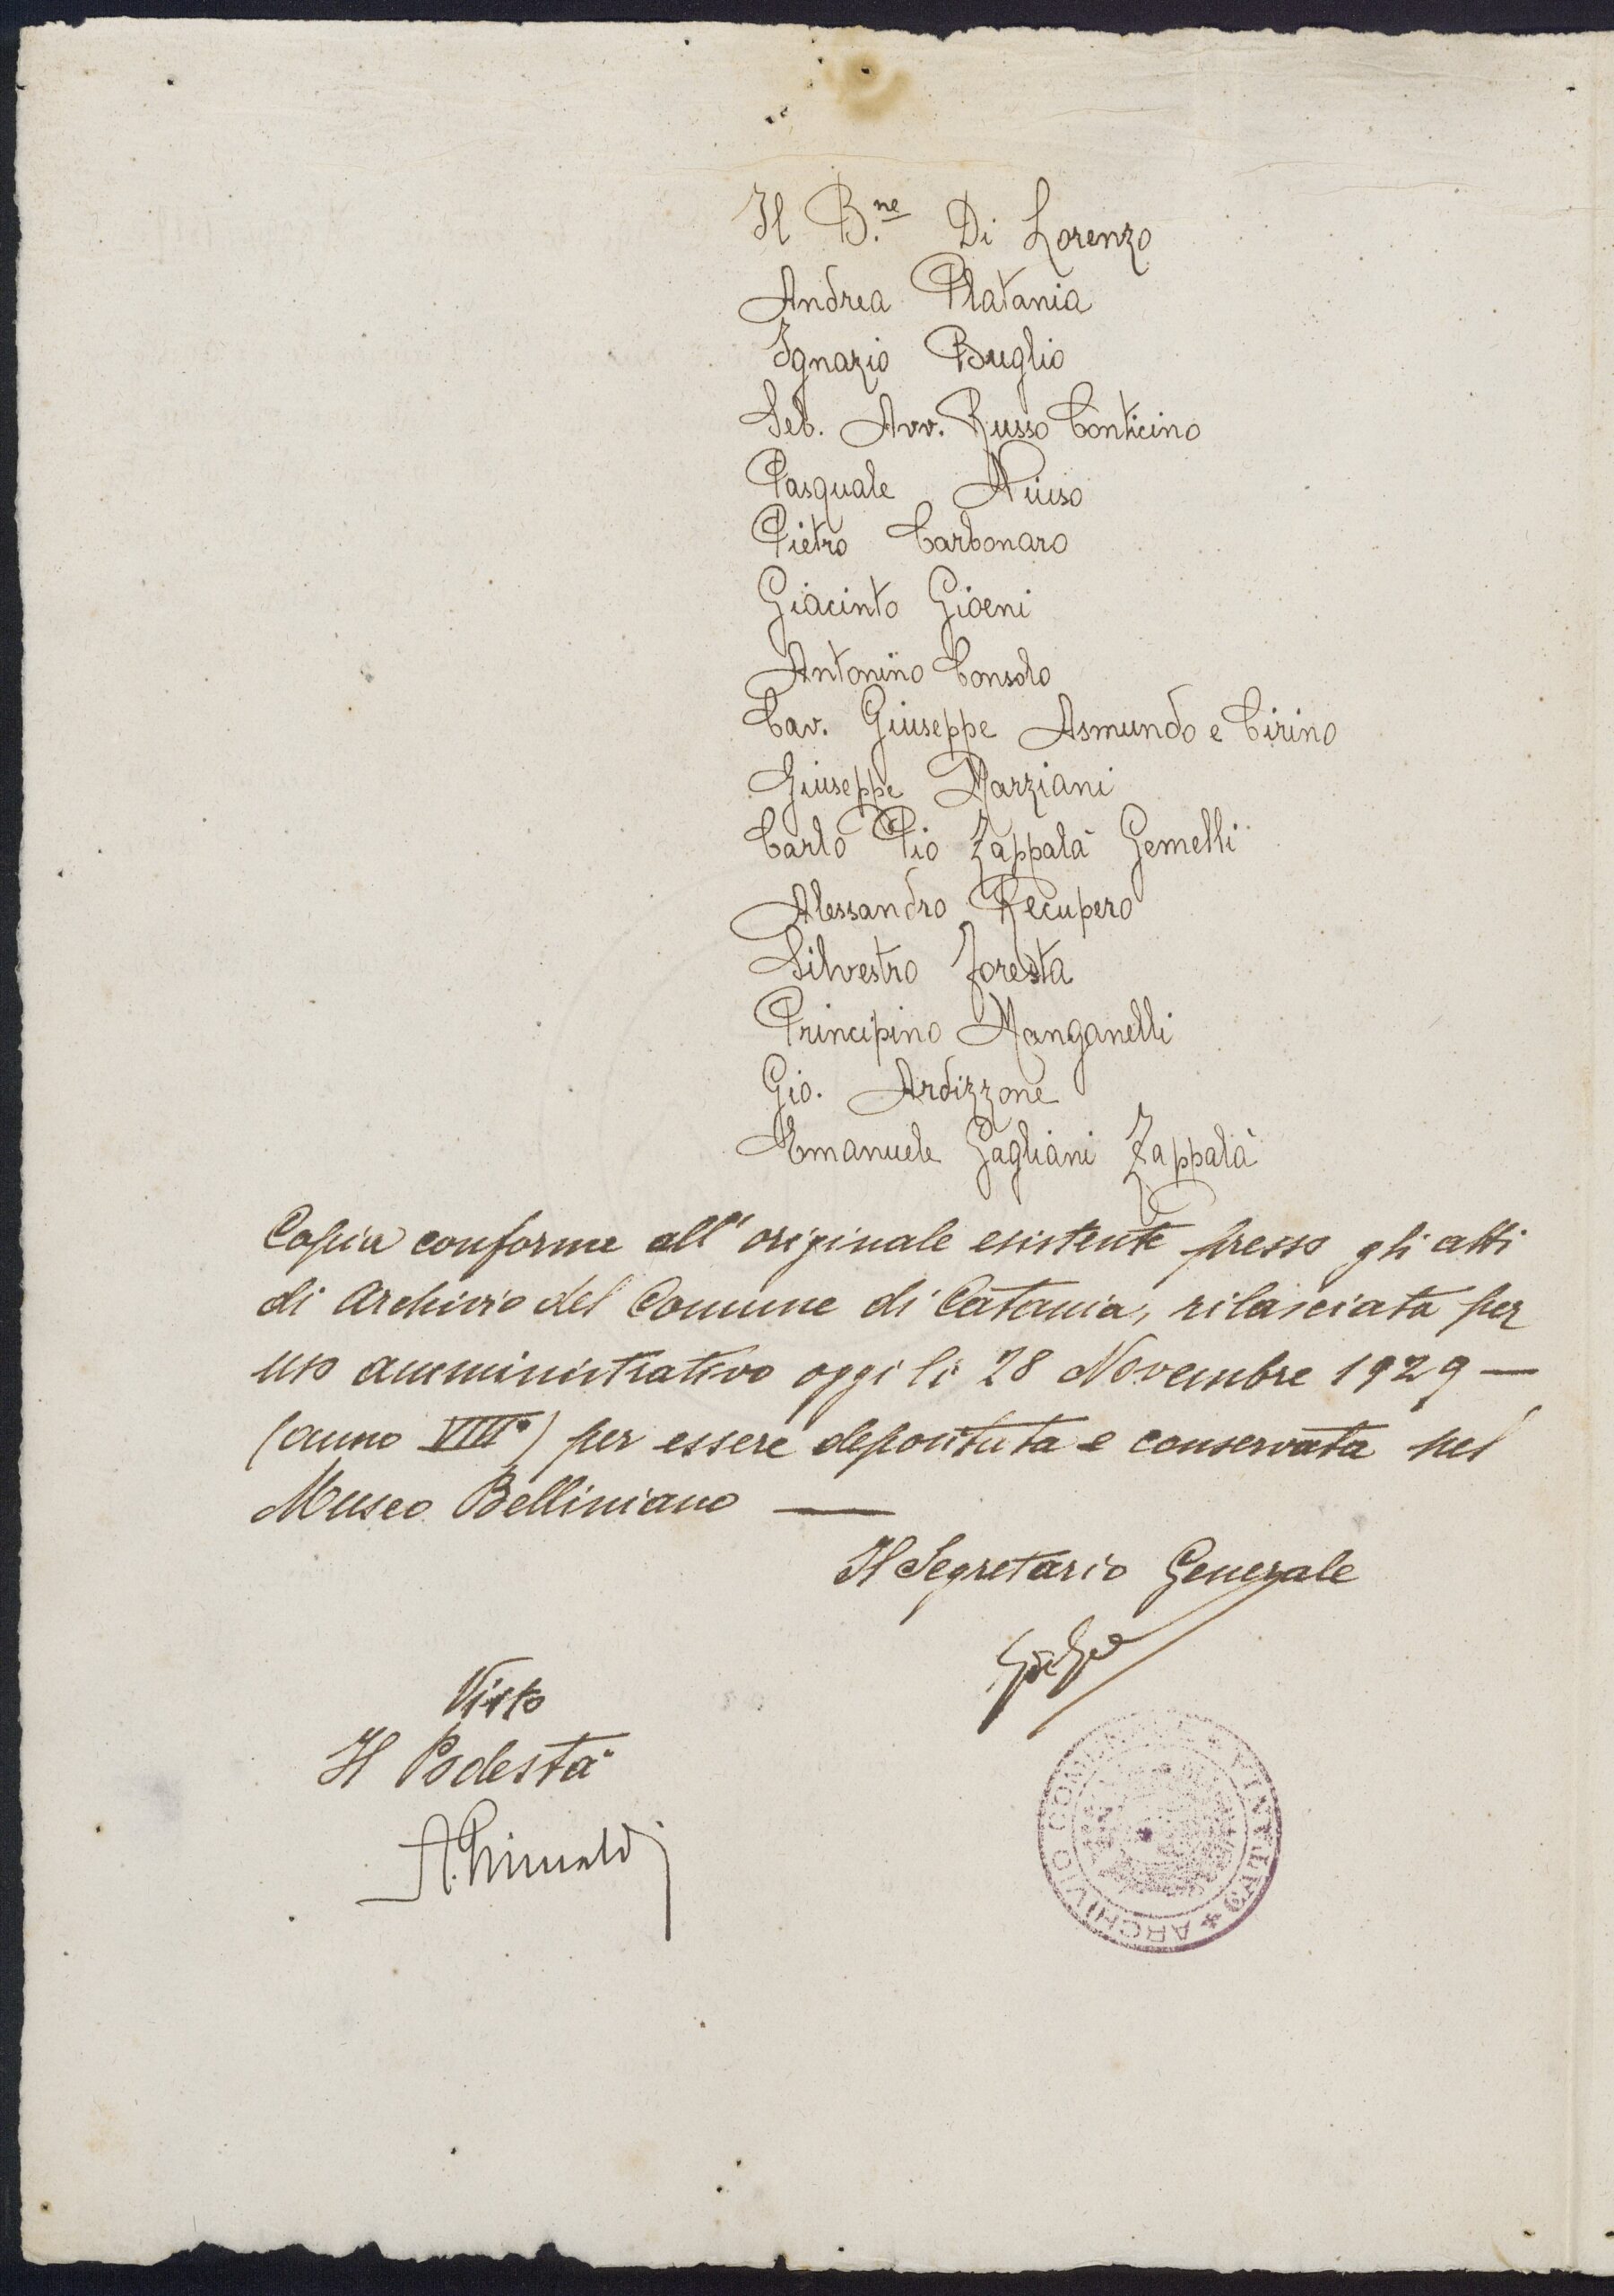 Il B.ne Di Lorenzo
Andrea Platania
Ignazio Buglio
Seb. Avv. Russo Conticino
Pasquale Ninso
Pietro Carbonaro
Giacinto Gioeni
Antonino Consolo
Cav. Giuseppe Asmundo e Cirino
Giuseppe Marziani
Carlo Pio Zappalà Gemelli
Alessandro Recupero
Silvestro Foresta
Principino Manganelli
Gio. Ardizzone
Emanuele Gagliani Zappalà
Copia conforme all'originale esistente presso gli atti
di Archivio del Comune di Catania, rilasciata per
uso amministrativo oggi li 28 Novembre 1929 —
(anno VIII°) per essere depositata e conservata nel
Museo Belliniano —
Il Segretario Generale
Visto
Il Podestà
A. Grimaldi
ARCHIVIO COMUNALE